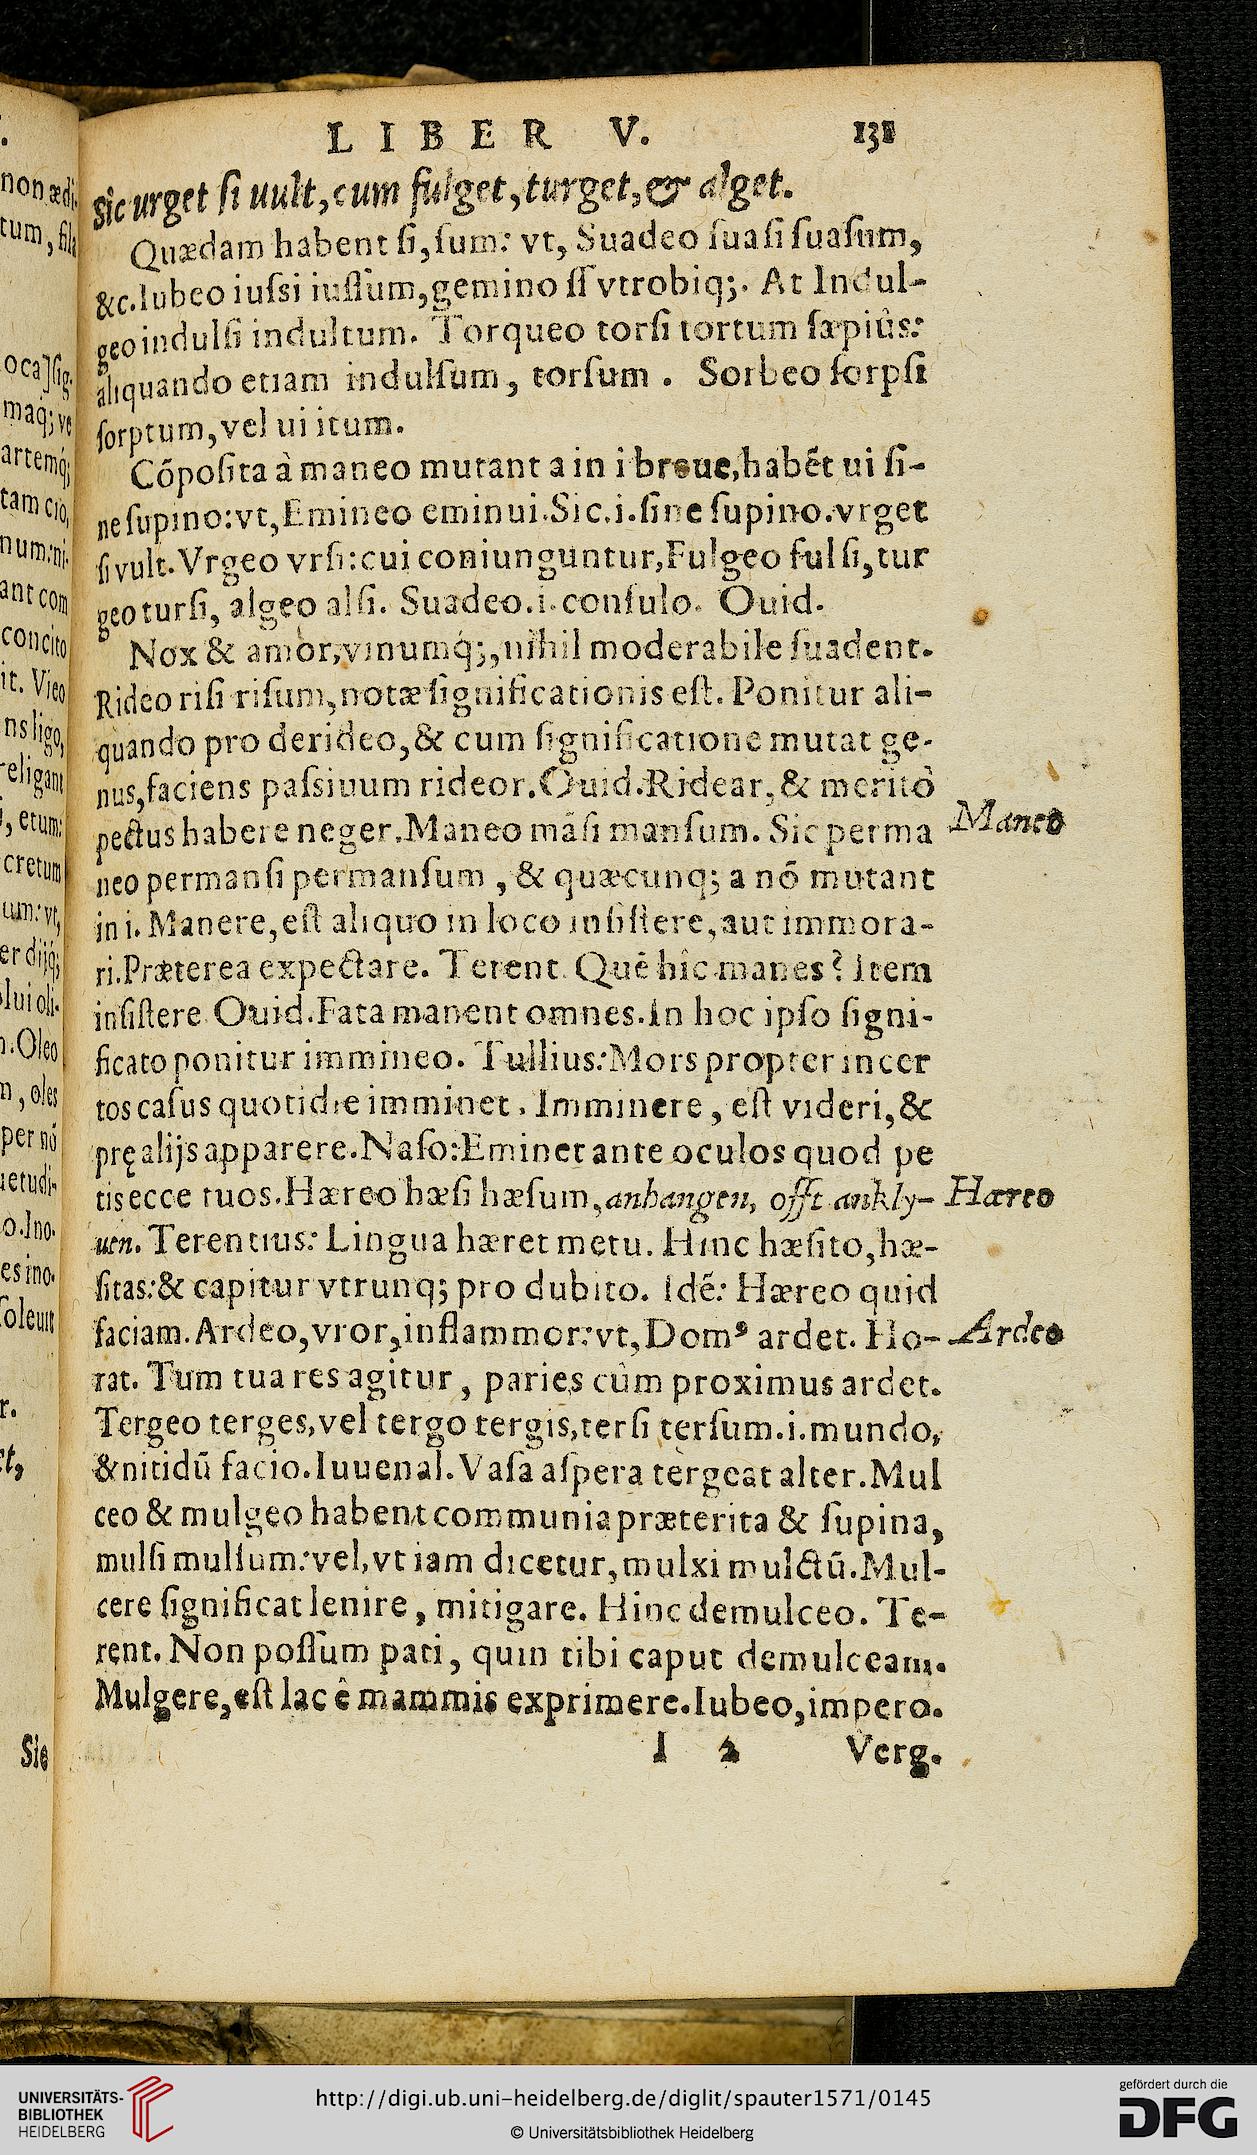 LIBER V. 131
Sic urget ſi uult, cum fulget, turget, & alget.
Quædam habent ſi, ſum: vt, Suadeo ſuaſi ſuaſum,
&c. Iubeo iuſsi iuſſum, gemino ſſ vtrobiq;. At Indul-
geo indulſi indultum. Torqueo torſi tortum ſæpiûs:
aliquando etiam indulſum, torſum. Sorbeo ſorpſi
ſorptum, vel ui itum.
Cōpoſita à maneo mutant a in i breue, habēt ui ſi-
ne ſupino: vt, Emineo eminui. Sic. i. ſine ſupino. vrget
ſi vult. Vrgeo vrſi: cui coniunguntur, Fulgeo fulſi, tur
geo turſi, algeo alſi. Suadeo. i. conſulo. Ouid.
Nox & amor, vinumq́;, nihil moderabile ſuadent.
Rideo riſi riſum, notæ ſignificationis eſt. Ponitur ali-
quando pro derideo, & cum ſignificatione mutat ge-
nus, faciens paſsiuum rideor. Ouid. Ridear, & meritò
pectus habere neger. Maneo māſi manſum. Sic perma
Maneo
neo permanſi permanſum, & quæcunq; a nō mutant
in i. Manere, eſt aliquo in loco inſiſtere, aut immora-
ri. Præterea expectare. Terent. Quē hîc manes? Item
inſiſtere Ouid. Fata manent omnes. In hoc ipſo ſigni-
ficato ponitur immineo. Tullius: Mors propter incer
tos caſus quotidie imminet. Imminere, eſt videri, &
prę alijs apparere. Naſo: Eminet ante oculos quod pe
tis ecce tuos. Hæreo hæſi hæſum, anhangen, offt ankly-
Hæreo
uen. Terentius: Lingua hæret metu. Hinc hæſito, hæ-
ſitas: & capitur vtrunq; pro dubito. Idē: Hæreo quid
faciam. Ardeo, vror, inflammor: vt, Domꝰ ardet. Ho-
Ardeo
rat. Tum tua res agitur, paries cûm proximus ardet.
Tergeo terges, vel tergo tergis, terſi terſum. i. mundo,
& nitidū facio. Iuuenal. Vaſa aſpera tergeat alter. Mul
ceo & mulgeo habent communia præterita & ſupina,
mulſi mulſum: vel, vt iam dicetur, mulxi mulctū. Mul-
cere ſignificat lenire, mitigare. Hinc demulceo. Te-
rent. Non poſſum pati, quin tibi caput demulceam.
Mulgere, eſt lac ê mammis exprimere. Iubeo, impero.
I 2 Verg.
non ædi-
tum, 
ſig.
maq́; ve
artemq́;
tam cio,
num: ni-
ant com
concito
it. Vieo
ns ligo,
religant
, etum:
cretum
um: vt,
er dijq́;
lui oli-
. Oleo
, oles
per nō
uetudi-
o. Ino-
es ino-
ſoleuit
r.
Sic
UNIVERSITÄTS-
BIBLIOTHEK
HEIDELBERG
http://digi.ub.uni-heidelberg.de/diglit/spauter1571/0145
© Universitätsbibliothek Heidelberg
gefördert durch die
DFG